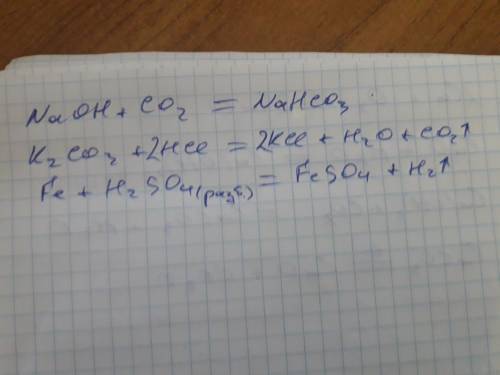 NaOH + CO2 = NaHCO3
K2CO3 + 2HCl = 2KCl + H2O + CO2↑
Fe + H2SO4(разб.) = FeSO4 + H2↑